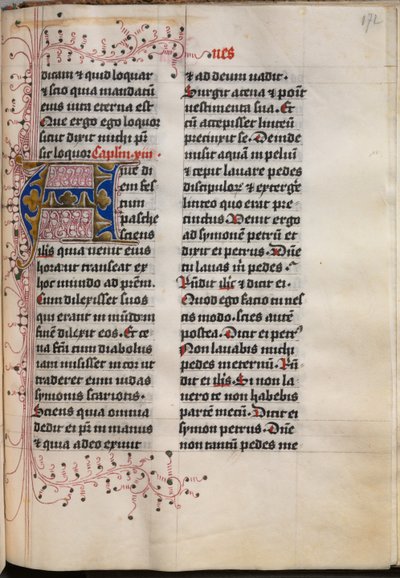 172
nes
dicam & quid loquar
& scio quia mandatū
eius vita eterna est
Que ergo ego loquor
sicut dixit michi pr̄
sic loquor Caplm .xiii.
Ante di
em fes
tum
pasche
sciens
ih̄s quia venit eius
hora ut transeat ex
hoc mundo ad prēm.
Cum dilexisset suos
qui erant in mūdo in
finē dilexit eos. Et ce
na fc̄a cum diabolus
iam misisset in cor ut
traderet eum iudas
symonis scarioth.
Sciens quia omnia
dedit ei pr̄ in manus
& quia a deo exiuit
& ad deum vadit.
Surgit a cena & pōit
vestimenta sua. Et
cū accepisset linteū
precinxit se. Deinde
misit aquā in peluī
& cepit lauare pedes
discipuloꝝ & extergẽ
linteo quo erat pre
cinctus. Venit ergo
ad symonem petrū et
dixit ei petrus. Dn̄e
tu lauas m̄ pedes.
Rn̄dit ih̄s & dixit ei.
Quod ego facio tu nes
cis modo. scies autē
postea. Dicit ei petꝰ
Non lauabis michi
pedes ineternū. Rn̄
dit ei ih̄s. Si non la
uero te non habebis
partē mecū. Dicit ei
symon petrus. Dn̄e
non tantū pedes me